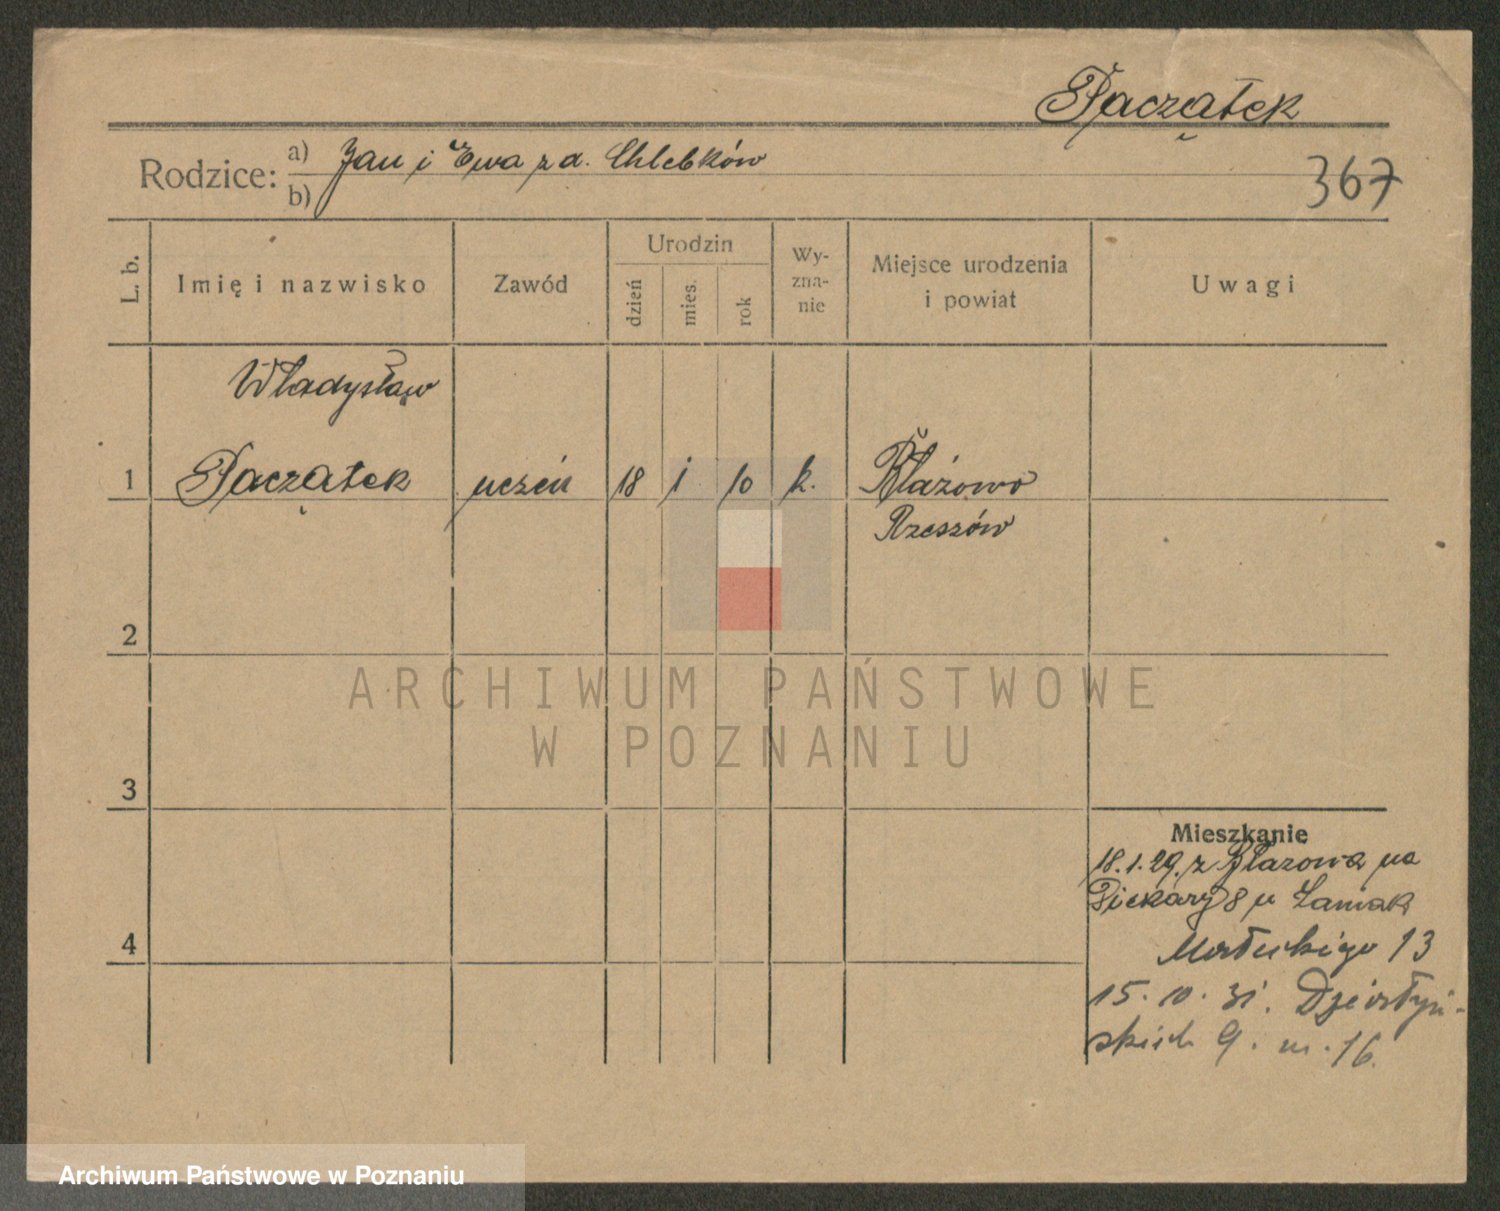 Paczątek
Rodzice: a) Jan i Ewa z d. Chlebków
b)
367
L. b.
Imię i nazwisko
Zawód
Urodzin
dzień
mies.
rok
Wy-
zna-
nie
Miejsce urodzenia
i powiat
Uwagi
Władysław
1 Paczątek uczeń 18 1 10 k. Błażowo
Rzeszów
2
3
4
Mieszkanie
18.1.29. z Błazowa na
Piekary 8 u Łaniak
Małeckiego 13
15.10.31. Działyń-
skich 9. m. 16.
ARCHIWUM PAŃSTWOWE
W POZNANIU
Archiwum Państwowe w Poznaniu